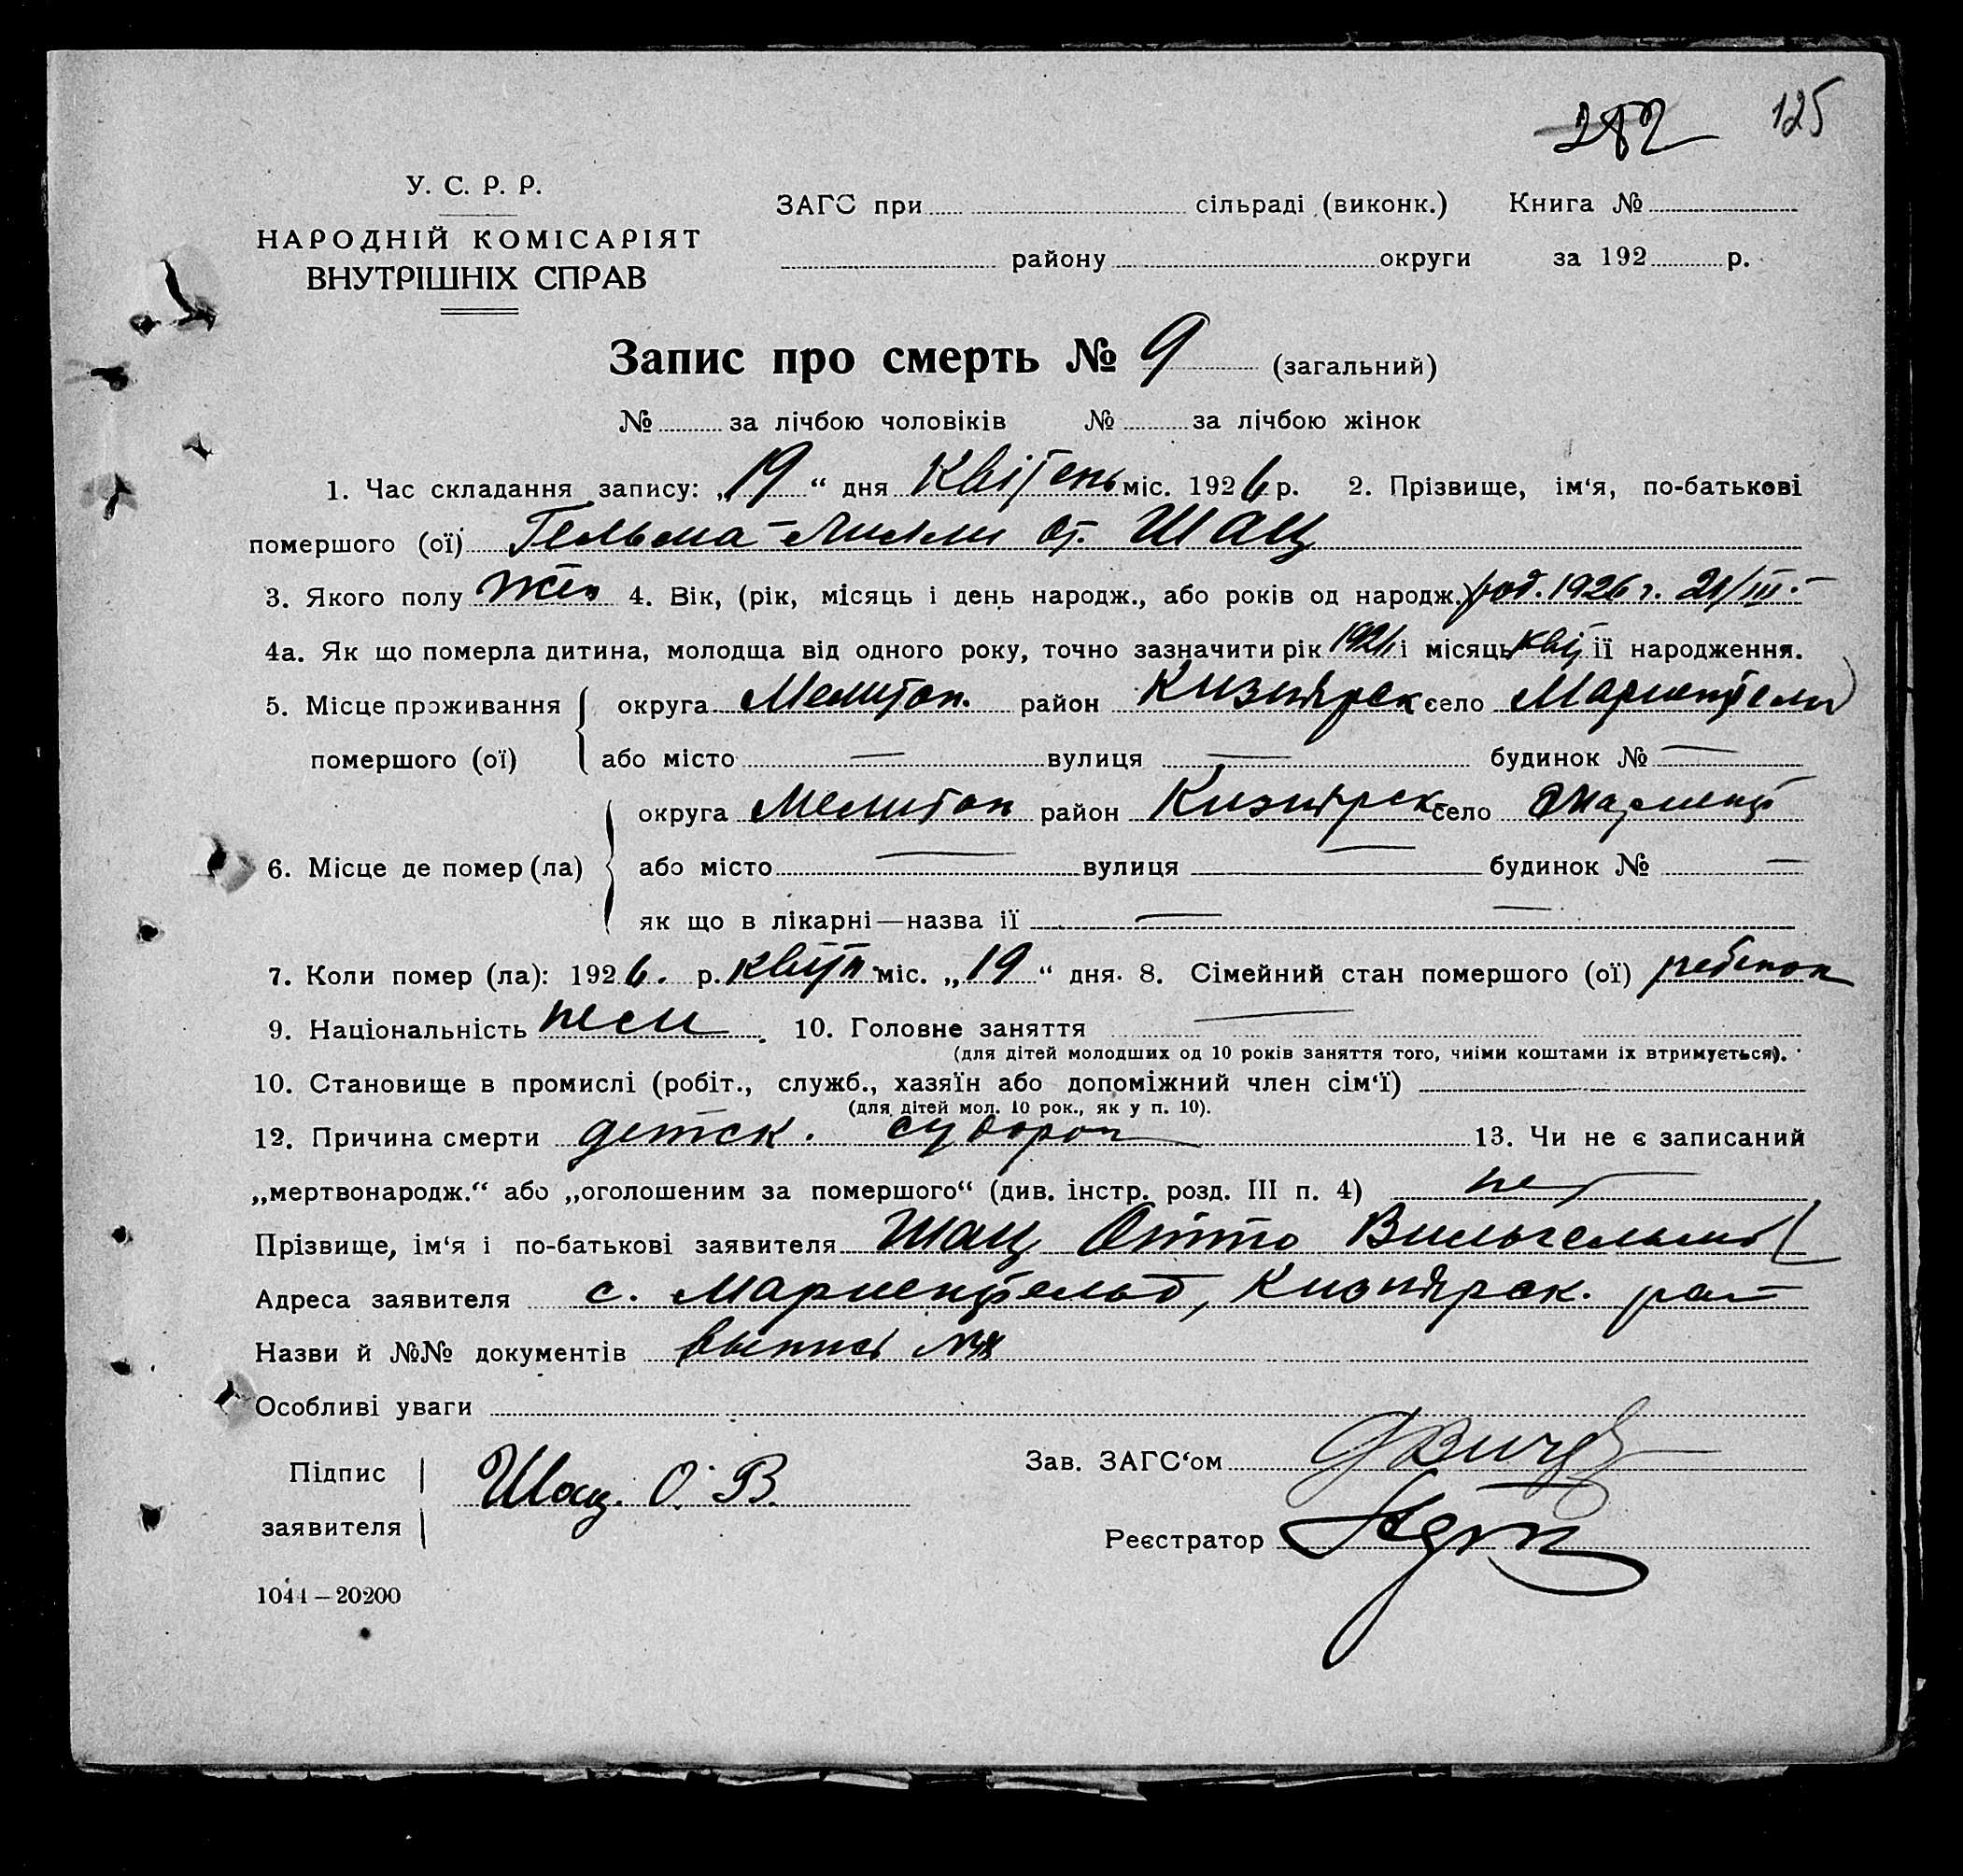 282 125
У. С. Р. Р.
НАРОДНІЙ КОМІСАРІЯТ
ВНУТРІШНІХ СПРАВ
ЗАГС при сільраді (виконк.) Книга №
району округи за 192 р.
Запис про смерть № 9 (загальний)
№ за лічбою чоловіків № за лічбою жінок
1. Час складання запису: „19“ дня Квітень міс. 1926 р. 2. Прізвище, ім'я, по-батькові
помершого (ої) Гельма-Лилли От. Шац
3. Якого полу жен 4. Вік, (рік, місяць і день народж., або років од народж.) род. 1926 г. 21/III.
4а. Як що померла дитина, молодща від одного року, точно зазначити рік 1926 і місяць квіт її народження.
5. Місце проживання округа Мелитоп. район Кизиярск село Мариенфельд
помершого (ої) або місто — вулиця — будинок № —
округа Мелитоп район Кизиярск село Мариенф
6. Місце де помер (ла) або місто — вулиця — будинок № —
як що в лікарні—назва її — —
7. Коли помер (ла): 1926. р. квітн міс. „19“ дня. 8. Сімейний стан помершого (ої) ребенок
9. Національність нем 10. Головне заняття —
(для дітей молодших од 10 років заняття того, чиїми коштами їх втримується).
10. Становище в промислі (робіт., служб., хазяїн або допоміжний член сім'ї)
(для дітей мол. 10 рок., як у п. 10).
12. Причина смерти детск. судорог 13. Чи не є записаний
„мертвонародж.“ або „оголошеним за помершого“ (див. інстр. розд. III п. 4) нет
Прізвище, ім'я і по-батькові заявителя Шац Отто Вильгельмов
Адреса заявителя с. Мариенфельд, Кизиярск. рай
Назви й №№ документів выпись
Особливі уваги
Підпис Шац. О. В. Зав. ЗАГС'ом
заявителя Реєстратор
1044—20200